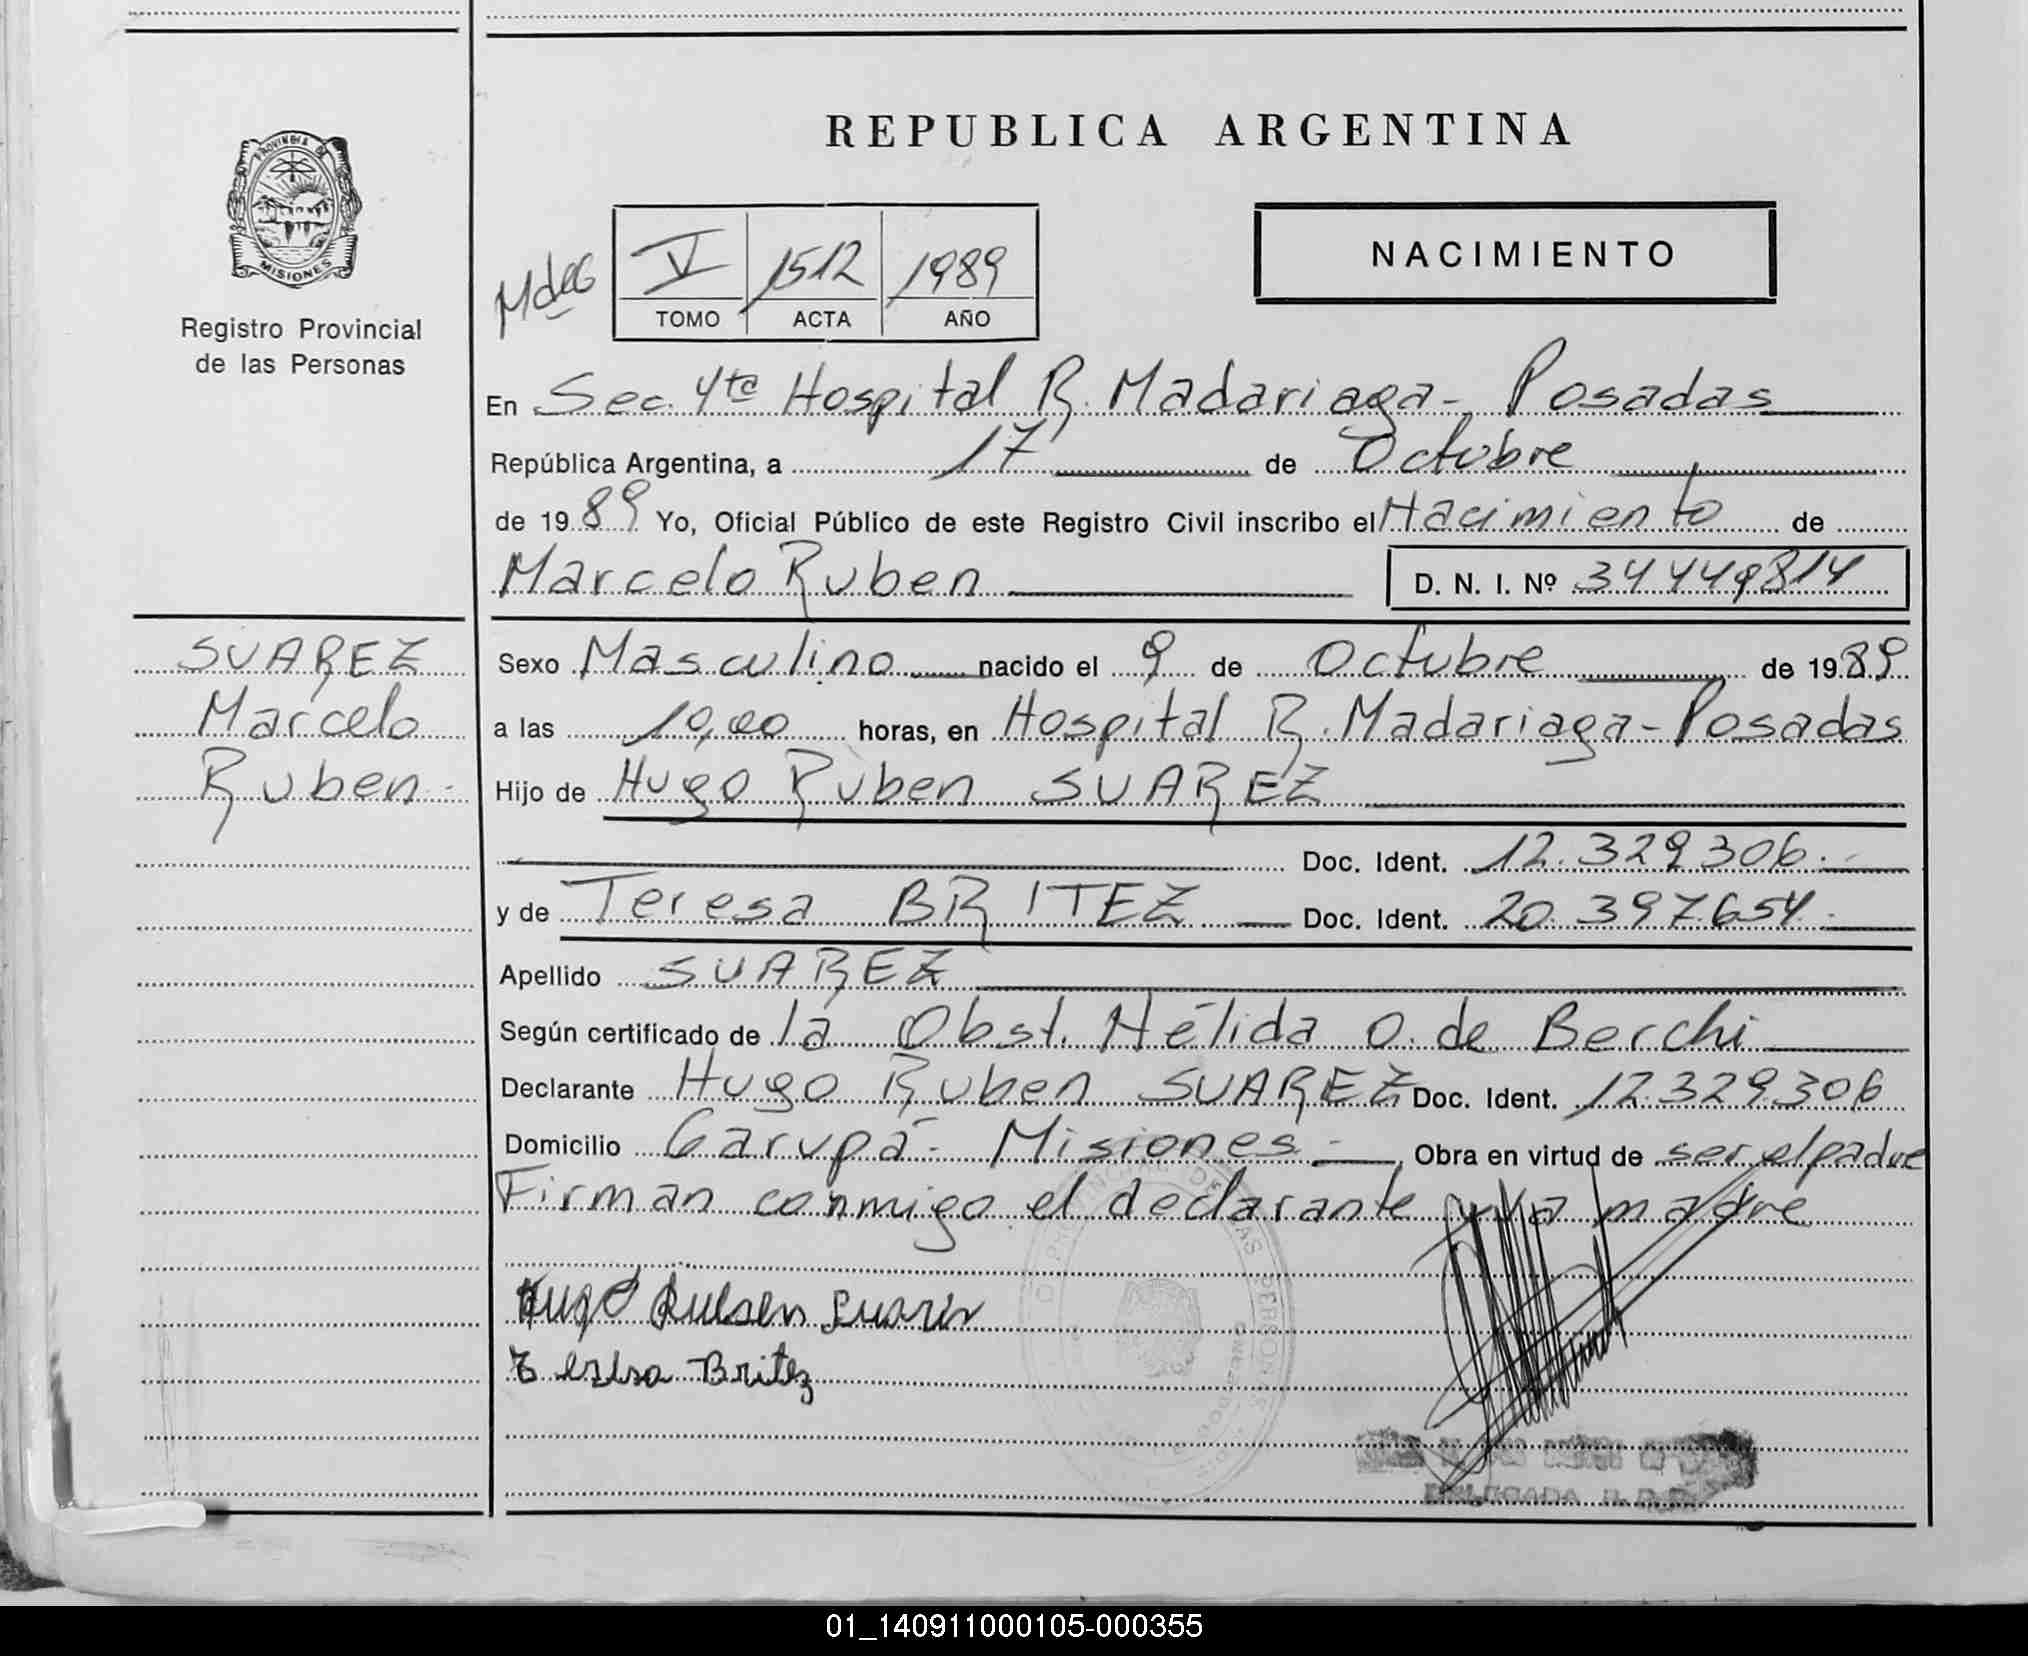 REPUBLICA ARGENTINA
PROVINCIA DE
MISIONES
Registro Provincial
de las Personas
NACIMIENTO
V 1512 1989
TOMO ACTA AÑO
En Sec. 4ta Hospital R. Madariaga - Posadas
República Argentina, a 17 de Octubre
de 1989 Yo, Oficial Público de este Registro Civil inscribo el Nacimiento de
Marcelo Ruben D. N. I. Nº 34449814
SUAREZ
Marcelo
Ruben.-
Sexo Masculino nacido el 9 de Octubre de 1989
a las 10,00 horas, en Hospital R. Madariaga - Posadas
Hijo de Hugo Ruben SUAREZ
Doc. Ident. 12.329306.-
y de Teresa BRITEZ Doc. Ident. 20.397.654.-
Apellido SUAREZ
Según certificado de la Obst. Nélida O. de Berchi
Declarante Hugo Ruben SUAREZ Doc. Ident. 12.329.306
Domicilio Garupá - Misiones.- Obra en virtud de ser el padre
Firman conmigo el declarante y la madre
Hugo Ruben Suarez
Teresa Britez
01_140911000105-000355